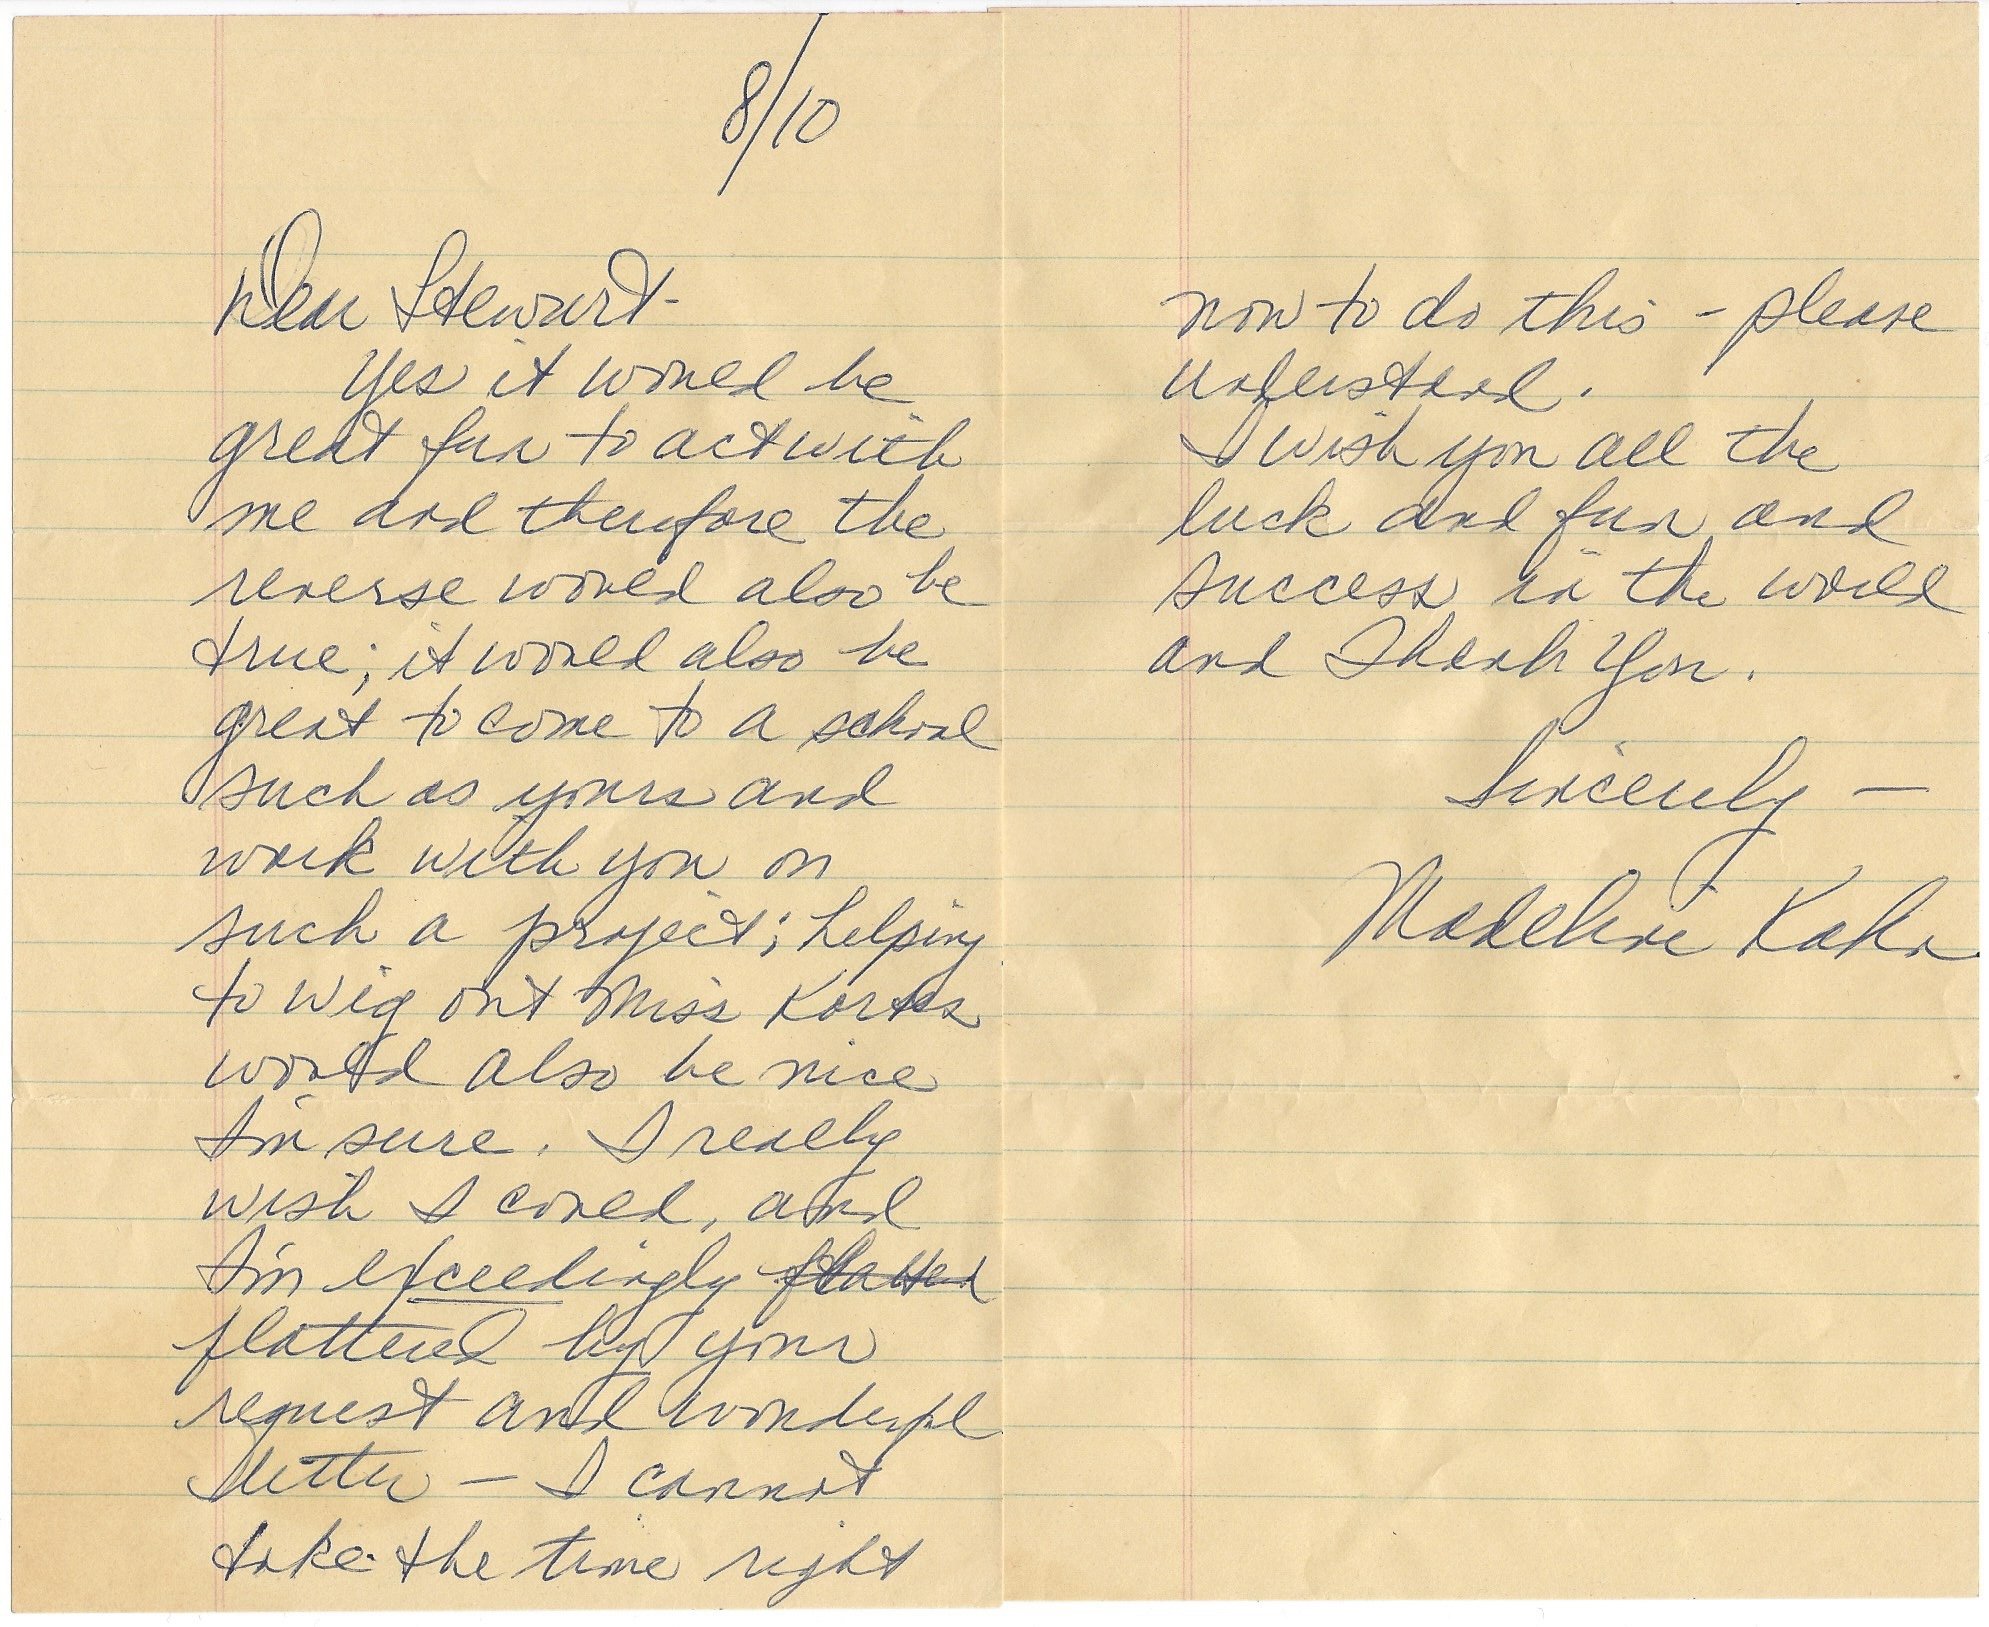 8/10
Dear Stewart-
Yes it would be
great fun to act with
me and therefore the
reverse would also be
true; it would also be
great to come to a school
such as yours and
work with you on
such a project; helping
to wig out Miss Kortes
would also be nice
I'm sure. I really
wish I could, and
I'm exceedingly flatted
flattered by your
request and wonderful
letter – I cannot
take the time right
now to do this – please
understand.
I wish you all the
luck and fun and
success in the world
and Thank You.
Sincerely –
Madeline Kahn